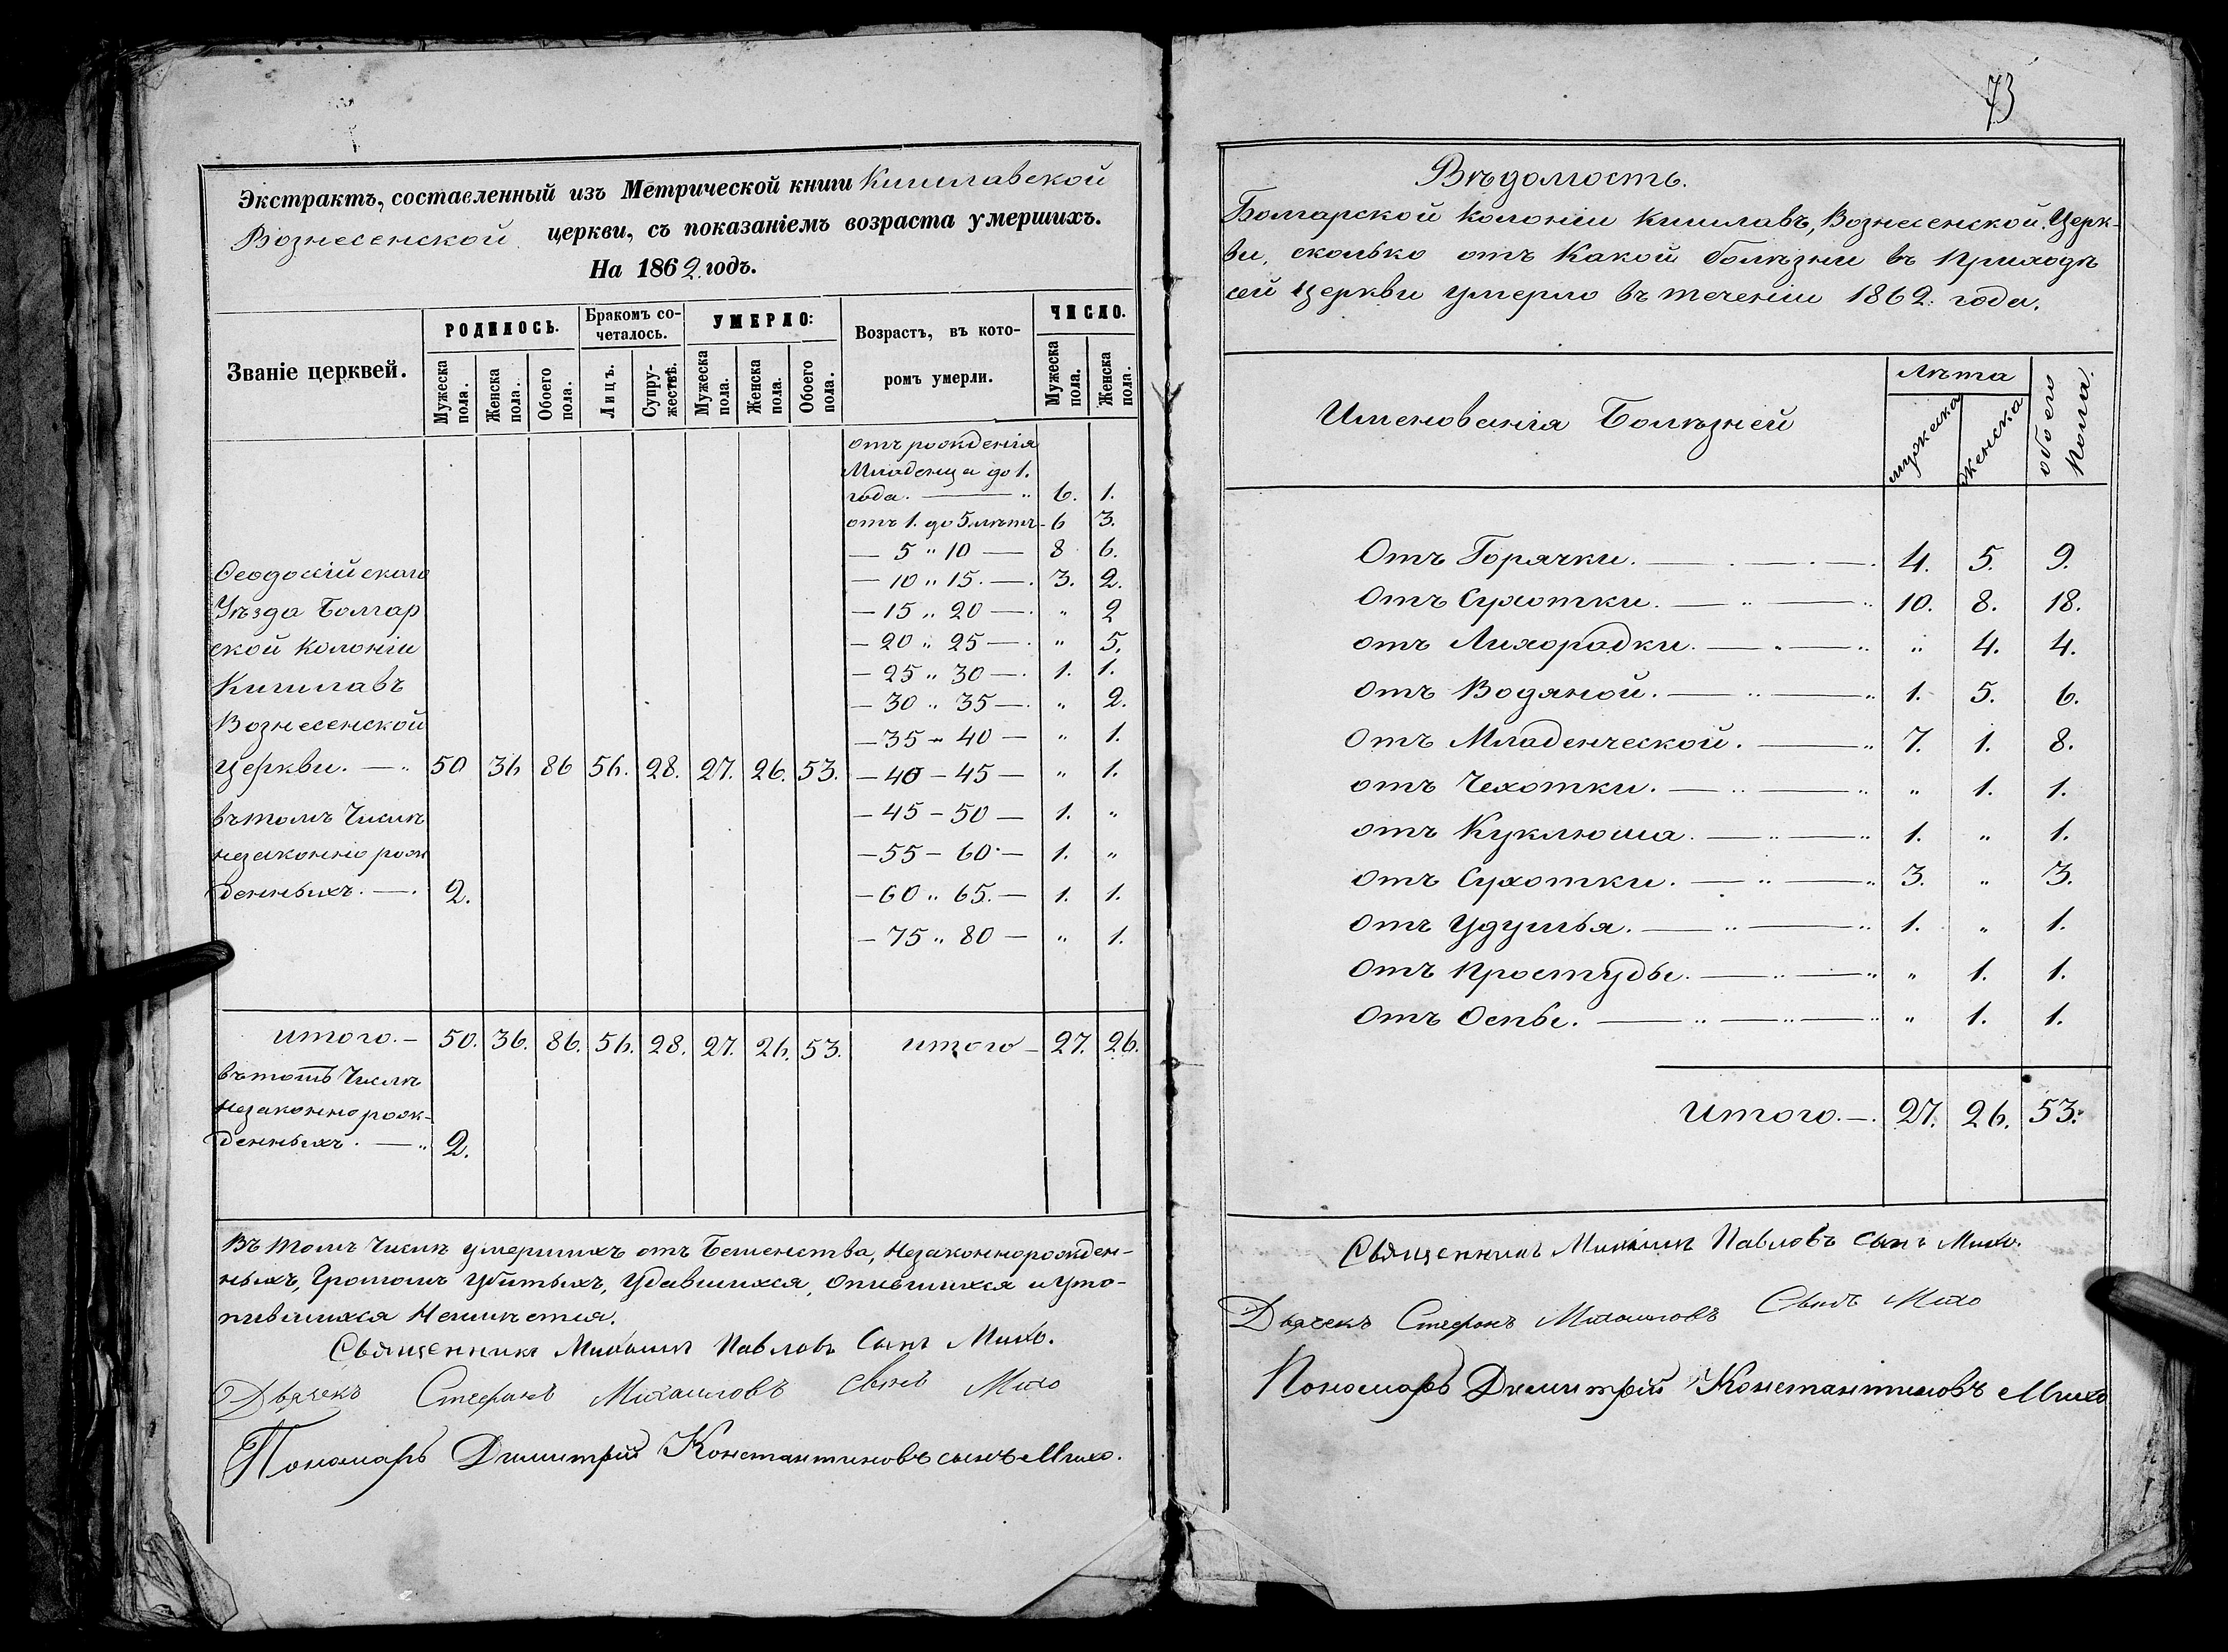 Экстрактъ, составленный изъ Метрической книги Кишлавской
Вознесенской церкви, съ показаніемъ возраста умершихъ.
На 1862 годъ.
Званіе церквей.
РОДИЛОСЬ.
Бракомъ со-
четалось.
УМЕРЛО:
Возрастъ, въ кото-
ромъ умерли.
ЧИСЛО.
Мужеска пола.
Женска пола.
Обоего пола.
Лицъ.
Супру-жествъ.
Мужеска пола.
Женска пола.
Обоего пола.
Мужеска пола.
Женска пола.
отъ рожденія
Младенца до 1.
года. — " 6. 1.
отъ 1. до 5 лѣтъ - 6 3.
— 5 " 10 — 8 6.
— 10 " 15. — 3. 2.
— 15 " 20 — " 2
— 20 " 25 — " 5.
— 25 " 30 — 1. 1.
— 30 " 35 — " 2.
— 35 - 40 — " 1.
— 40 - 45 — " 1.
— 45 - 50 — 1. "
— 55 - 60 — 1. "
— 60 " 65. — 1. 1.
— 75 " 80 — " 1.
Ѳеодосійскаго
Уѣзда Болгар
ской Колоніи
Кишлавъ
Вознесенской
Церкви. — 50 36 86 56. 28. 27. 26. 53.
въ томъ Числѣ
незаконно рож
денныхъ. — 2.
Итого. — 50. 36. 86. 56. 28. 27. 26. 53. Итого — 27. 26.
въ томъ Числѣ
незаконно рож-
денныхъ. — 2.
Въ томъ Числѣ умершихъ отъ Бешенства, Незаконнорожден-
ныхъ, Громомъ Убитыхъ, Удавшихся, Опившихся и Уто-
пившихся Неимѣется.
Священникъ Михаилъ Павловъ Сынъ Михо.
Дьячекъ Стефанъ Михаиловъ Сынъ Михо
Пономарь Димитрій Константиновъ сынъ Михо.
73
Вѣдомость.
Болгарской Колоніи Кишлавъ, Вознесенской Церк-
ви, сколько отъ Какой болѣзни въ Приходѣ
сей Церкви Умерло въ теченіи 1862. года.
Именованія Болѣзней
Лѣта
мужеска
женска
обоего Пола.
Отъ Горячки. — 4. 5. 9.
Отъ Сухотки. — 10. 8. 18.
отъ Лихорадки. — " 4. 4.
отъ Водяной. — 1. 5. 6.
Отъ Младенческой. — 7. 1. 8.
отъ Чехотки. — " 1. 1.
отъ Куклюша. — 1. " 1.
отъ Сухотки. — 3. " 3.
отъ Удушья. — 1. " 1.
Отъ Простуды. — " 1. 1.
Отъ Оспы. — " 1. 1.
Итого. — 27. 26. 53.
Священникъ Михаилъ Павловъ Сынъ Михо.
Дьячекъ Стефанъ Михаиловъ Сынъ Михо
Пономарь Димитрій Константиновъ Михо